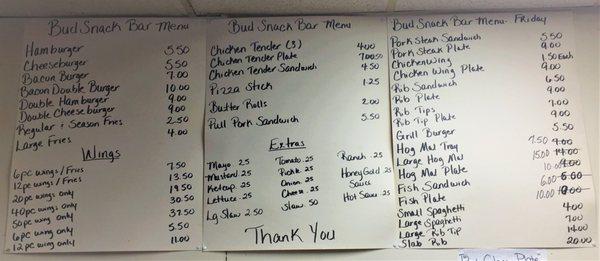 Bud Snack Bar Menu
Hamburger 5.50
Cheeseburger 5.50
Bacon Burger 7.00
Bacon Double Burger 10.00
Double Hamburger 9.00
Double Cheeseburger 9.00
Regular + Season Fries 2.50
Large Fries 4.00
Wings
6pc wings/Fries 7.50
12pc wings/Fries 13.50
20pc wings only 19.50
40pc wings only 30.50
50pc wings only 37.50
6pc wing only 5.50
12pc wing only 11.00
Bud Snack Bar Menu
Chicken Tender (3) 4.00
Chicken Tender Plate 7.00
Chicken Tender Sandwich 4.50
Pizza Stick 1.25
Butter Rolls 2.00
Pull Pork Sandwich 5.50
Extras
Mayo .25 Tomato .25 Ranch .25
Mustard .25 Pickle .25 Honey Gold .25
Ketcup .25 Onion .25 Sauce
Lettuce .25 Cheese .25 Hot Sauce .25
Lg Slaw 2.50 Slaw 50
Thank You
Bud Snack Bar Menu - Friday
Pork Steak Sandwich 5.50
Pork Steak Plate 9.00
Chicken Wing 1.50 Each
Chicken Wing Plate 9.00
Rib Sandwich 6.50
Rib Plate 9.00
Rib Tips 7.00
Rib Plate 9.00
Grill Burger 5.50
Hog Maw Tray 7.50
Large Hog Maw 15.00 14.00
Hog Maw Plate 10.00
Fish Sandwich 6.00
Fish Plate 10.00
Small Spaghetti 4.00
Large Spaghetti 7.00
Large Rib Tip 14.00
Slab Rib 20.00